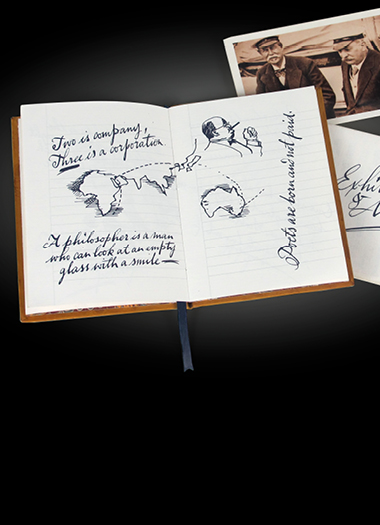 Two is company,
Three is a corporation
A philosopher is a man
who can look at an empty
glass with a smile
Poets are born and not paid.
&